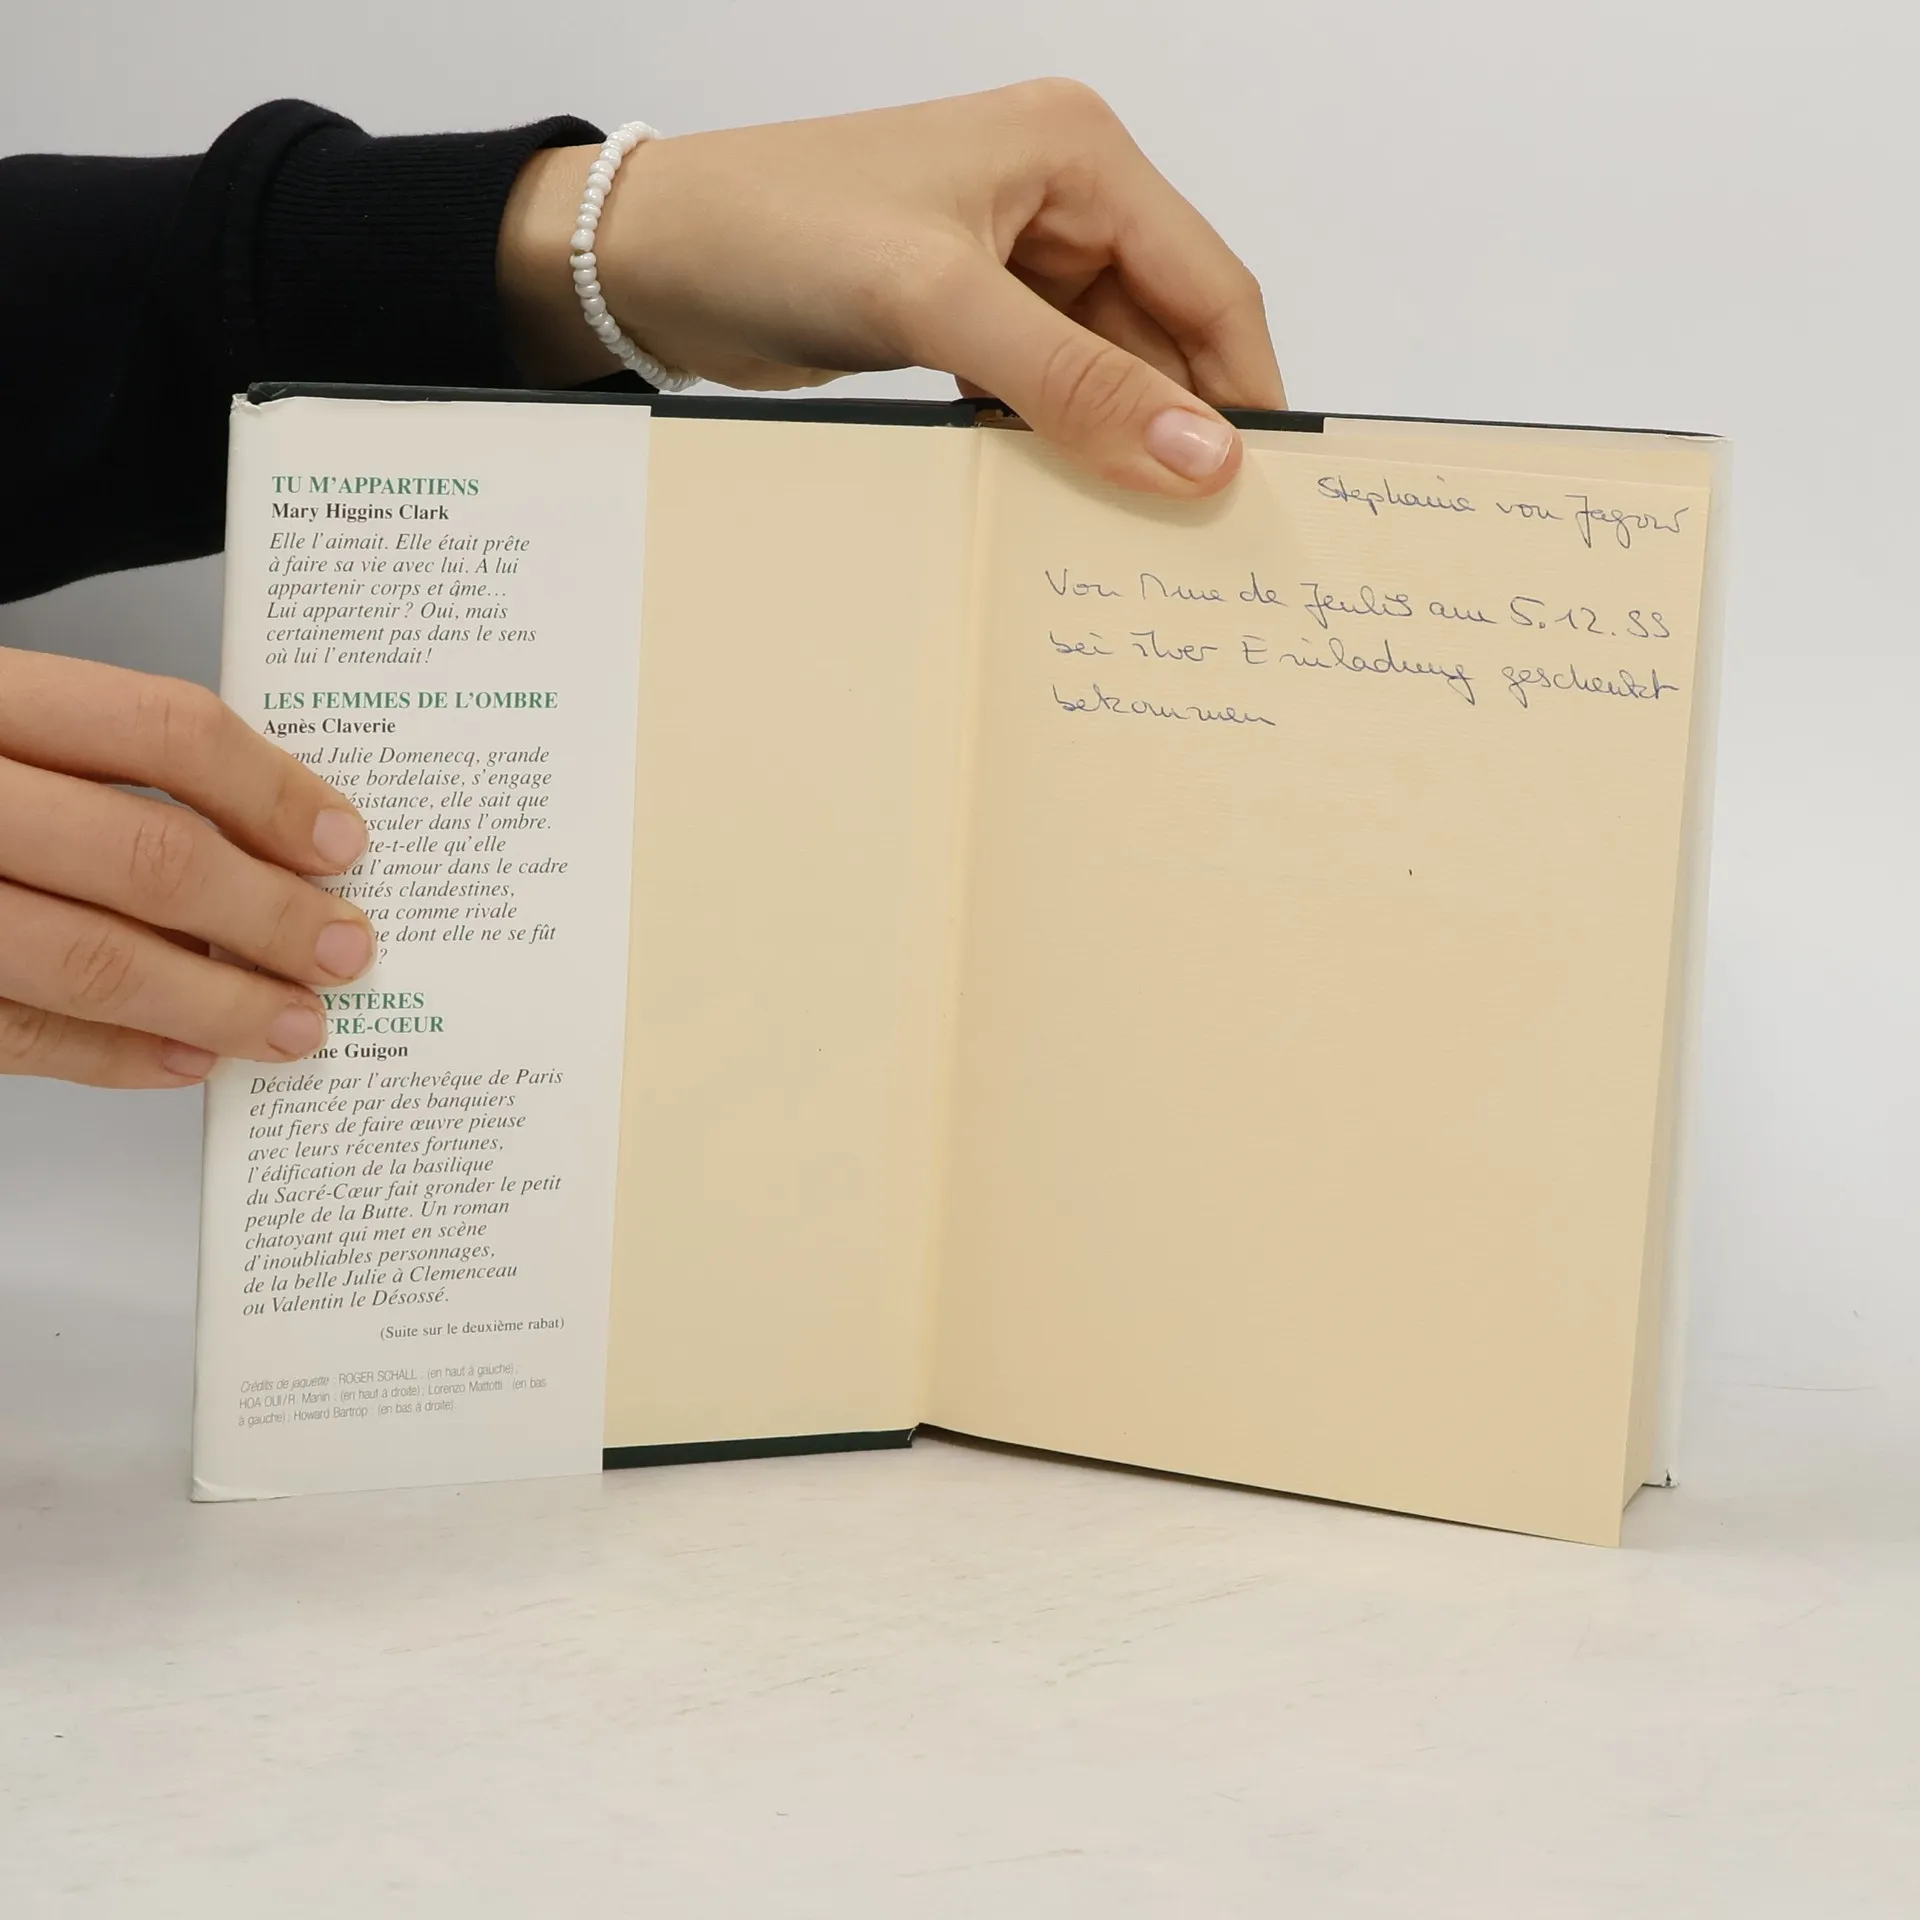 TU M'APPARTIENS
Mary Higgins Clark
Elle l'aimait. Elle était prête
à faire sa vie avec lui. A lui
appartenir corps et âme...
Lui appartenir ? Oui, mais
certainement pas dans le sens
où lui l'entendait !
LES FEMMES DE L'OMBRE
Agnès Claverie
Julie Domenecq, grande
bordelaise, s'engage
ésistance, elle sait que
dans l'ombre.
te-t-elle qu'elle
l'amour dans le cadre
activités clandestines,
comme rivale
dont elle ne se fût
?
YSTÈRES
CRÉ-CŒUR
ine Guigon
Décidée par l'archevêque de Paris
et financée par des banquiers
tout fiers de faire œuvre pieuse
avec leurs récentes fortunes,
l'édification de la basilique
du Sacré-Cœur fait gronder le petit
peuple de la Butte. Un roman
chatoyant qui met en scène
d'inoubliables personnages,
de la belle Julie à Clemenceau
ou Valentin le Désossé.
(Suite sur le deuxième rabat)
Crédits de jaquette : ROGER SCHALL : (en haut à gauche) ;
HOA QUI/R. Manin : (en haut à droite) ; Lorenzo Mattotti : (en bas
à gauche) ; Howard Bartrop : (en bas à droite).
Stephanie von Jagow
Von Mme de am 5.12.99
bei ihrer Einladung geschenkt
bekommen